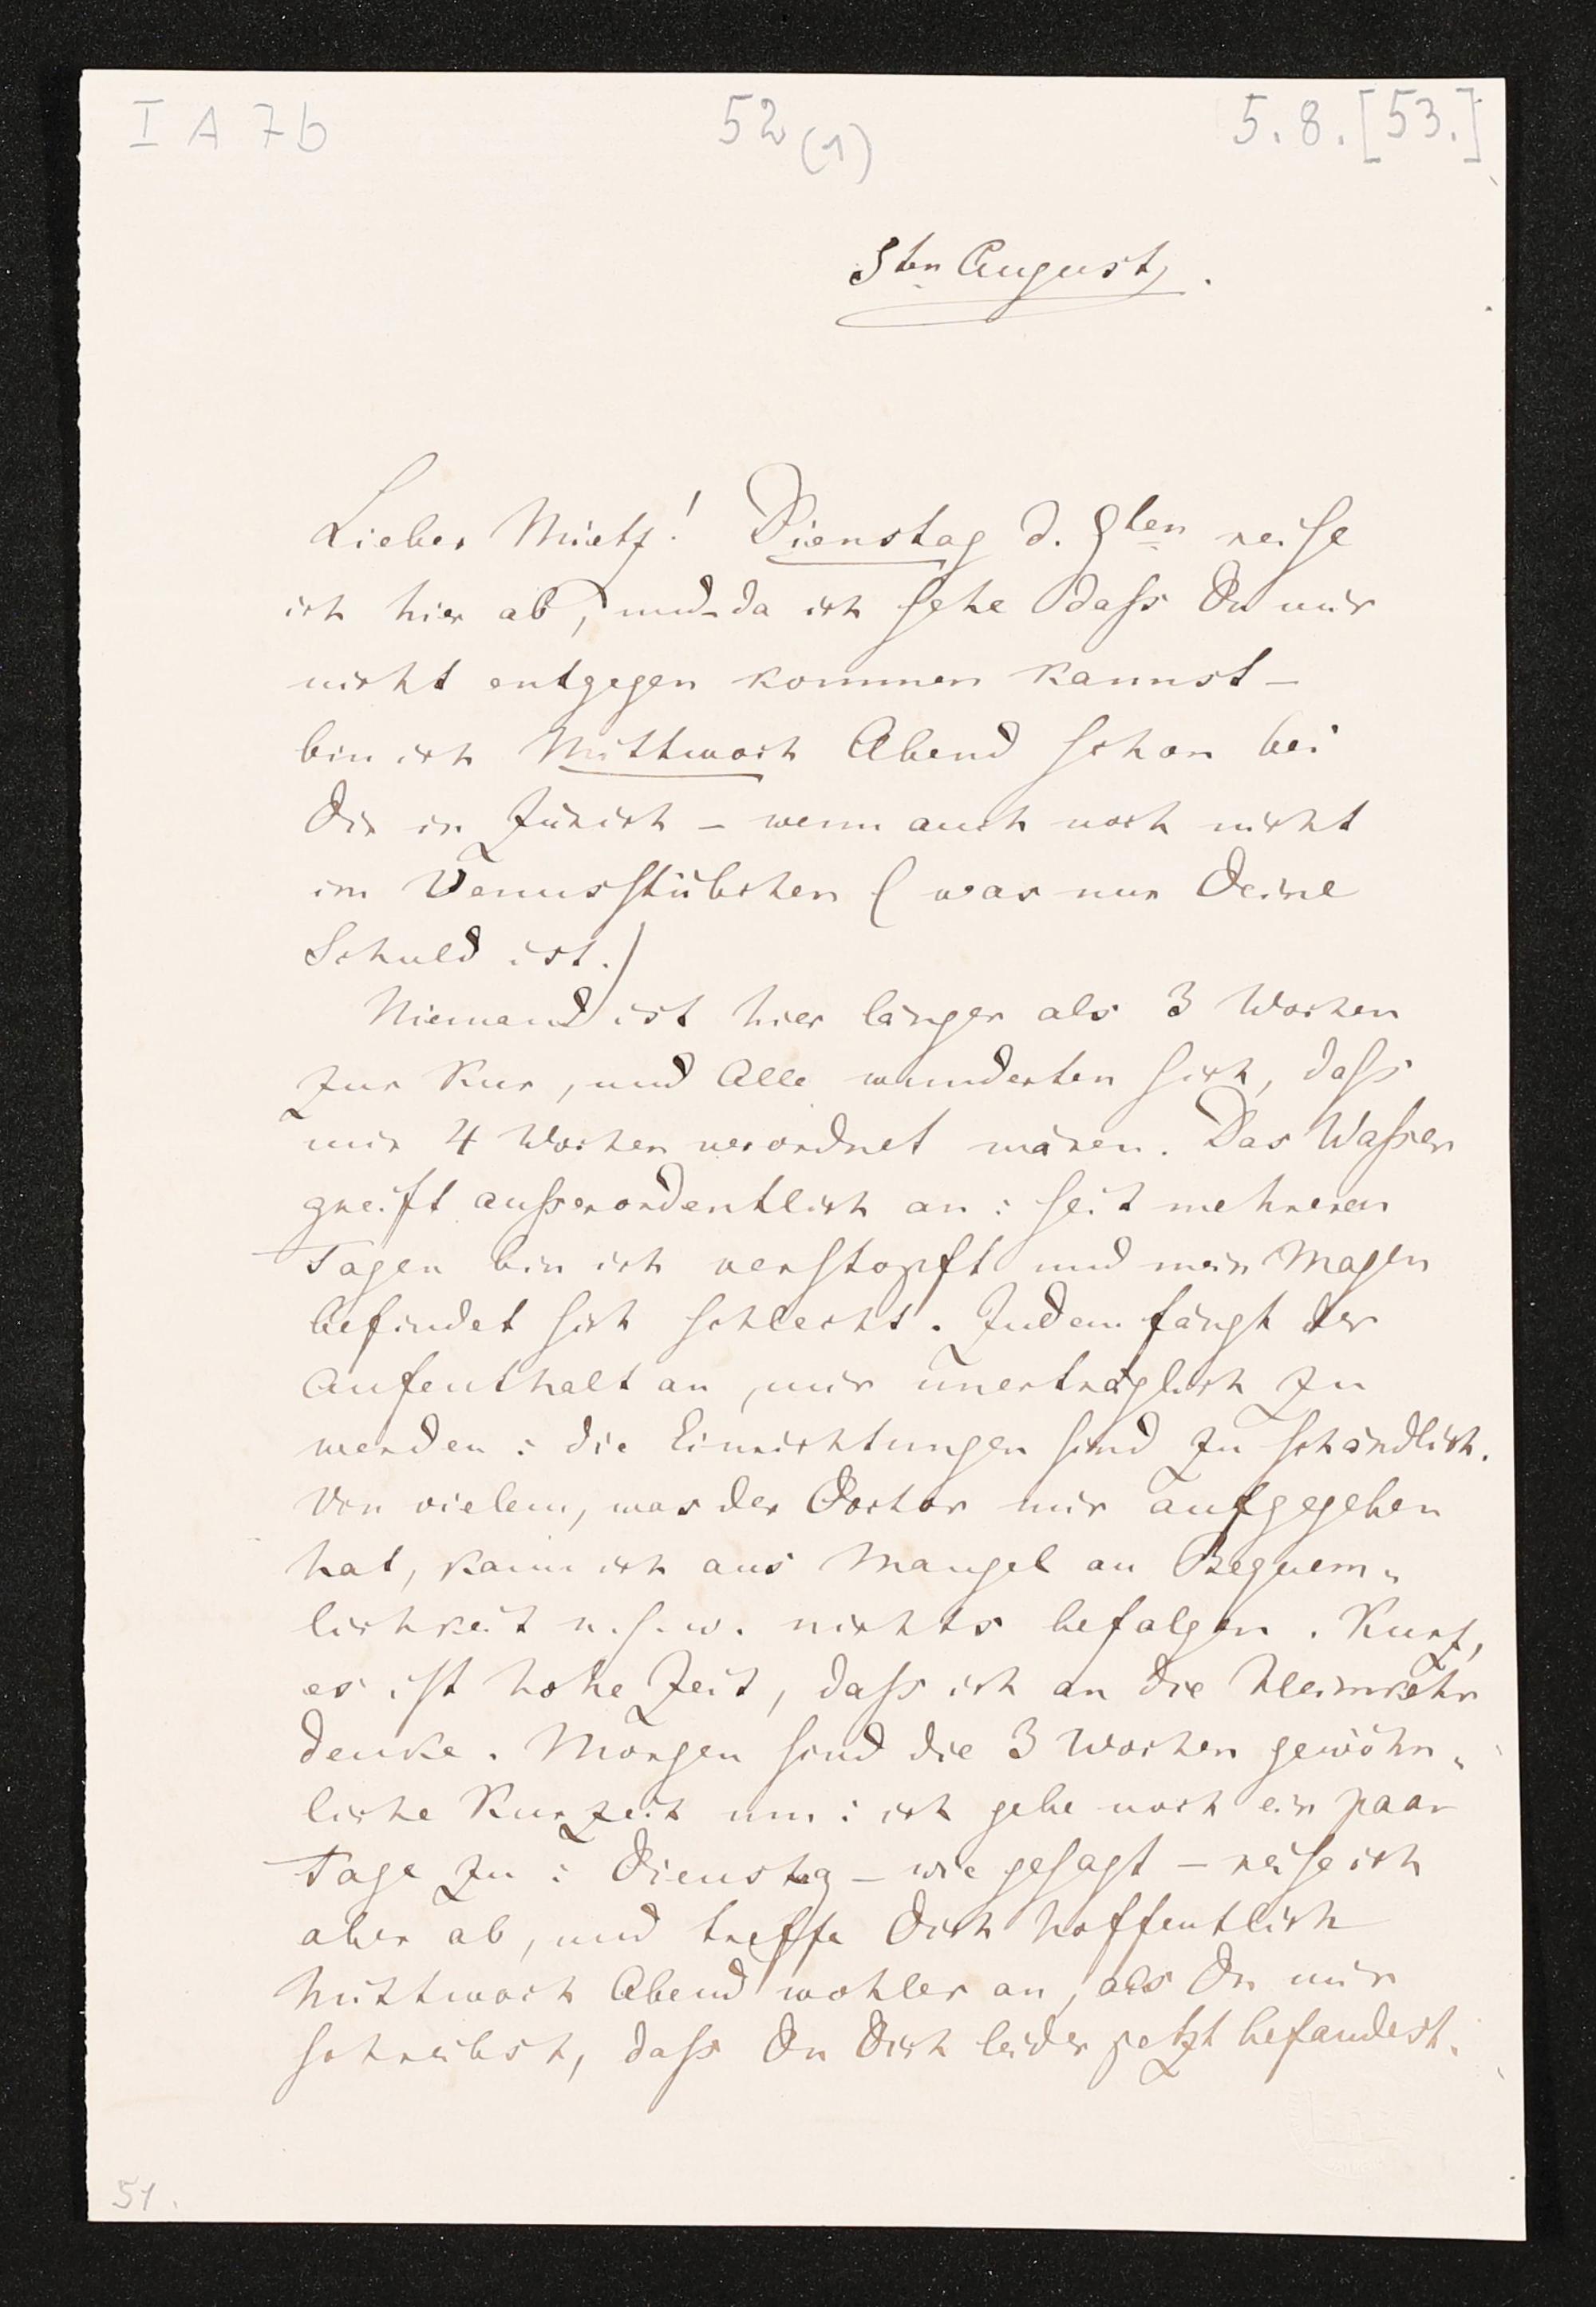 I A 7b
52 (1)
5. 8. [53.]
5ten August.
Lieber Mietz! Dienstag d. 9ten reise
ich hier ab, und da ich sehe dass Du mir
nicht entgegen kommen kannst –
bin ich Mittwoch Abend schon bei
Dir in Zürich – wenn auch noch nicht
im Venusstübchen (was nur Deine
Schuld ist.)
Niemand ist hier länger als 3 Wochen
zur Kur, und Alle wunderten sich, dass
mir 4 Wochen verordnet wären. Das Wasser
greift ausserordentlich an: seit mehreren
Tagen bin ich verstopft und mein Magen
befindet sich schlecht. Zudem fängt der
Aufenthalt an, mir unerträglich zu
werden: die Einrichtungen sind zu schändlich.
Von vielem, was der Doctor mir aufgegeben
hat, kann ich aus Mangel an Bequem-
lichkeit u. s. w. nichts befolgen. Kurz,
es ist hohe Zeit, dass ich an die Heimkehr
denke. Morgen sind die 3 Wochen gewöhn-
liche Kurzeit um: ich gebe noch ein paar
Tage zu: Dienstag – wie gesagt – reise ich
aber ab, und treffe Dich hoffentlich
Mittwoch Abend wohler an, als Du mir
schreibst, dass Du Dich leider jetzt befandest.
51.